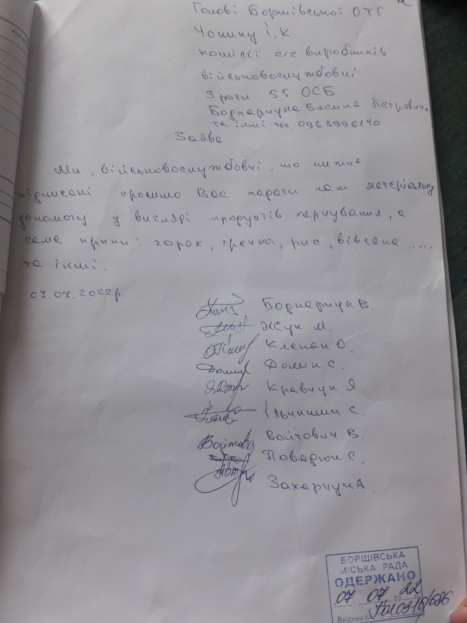 Голові Борщівської ОТГ
Чошику І.К.
комісії с/г виробників
військовослужбовці
3 роти 55 ОСБ
Боднарчука Василя Петровича
та інші тел. 0963996140
Заява
Ми, військовослужбовці, що нижче
підписані просимо Вас надати нам матеріальну
допомогу у вигляді продуктів харчування, а
саме крупи: горох, гречка, рис, вівсяна .....
та інші.
07.07.2022р.
Боднарчук В.
Жук М.
Клепан О.
Долин С.
Кравчук Я
Ільчишин С.
Войтович В.
Поварчук С.
Захарчук А.
БОРЩІВСЬКА
МІСЬКА РАДА
ОДЕРЖАНО
07 07 22